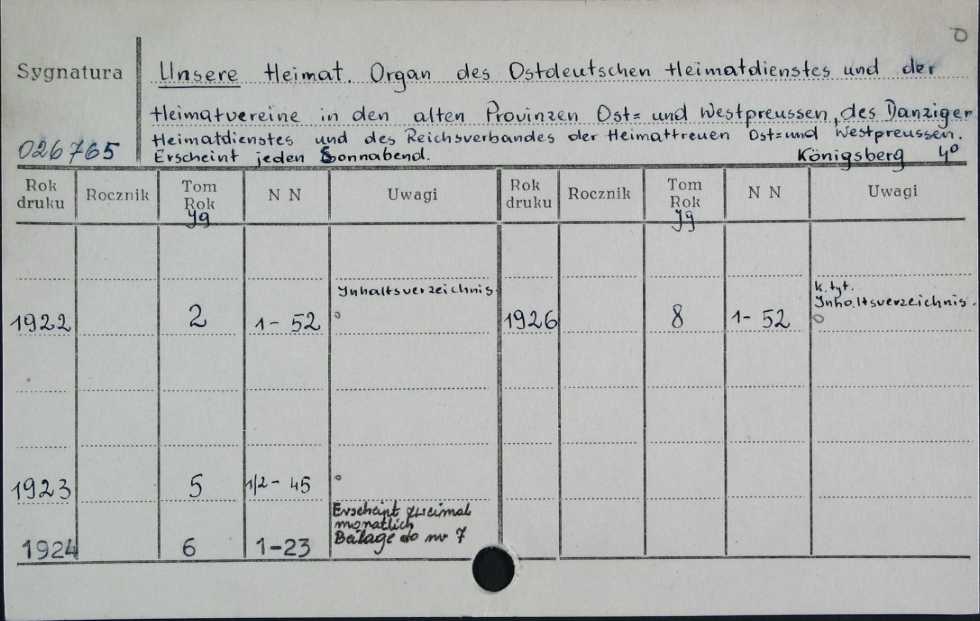 D
Sygnatura
Unsere Heimat. Organ des Ostdeutschen Heimatdienstes und der
Heimatvereine in den alten Provinzen Ost= und Westpreussen, des Danziger
Heimatdienstes und des Reichsverbandes der Heimattreuen Ost= und Westpreussen.
026765 Erscheint jeden Sonnabend. Königsberg 4º
Rok druku Rocznik Tom Rok Jg N N Uwagi Rok druku Rocznik Tom Rok Jg N N Uwagi
Inhaltsverzeichnis k. tyt.
Inhaltsverzeichnis.
1922 2 1 - 52 º 1926 8 1 - 52 º
1923 5 1/2 - 45 º
Erscheint zweimal
monatlich
1924 6 1-23 Beilage do nr 7